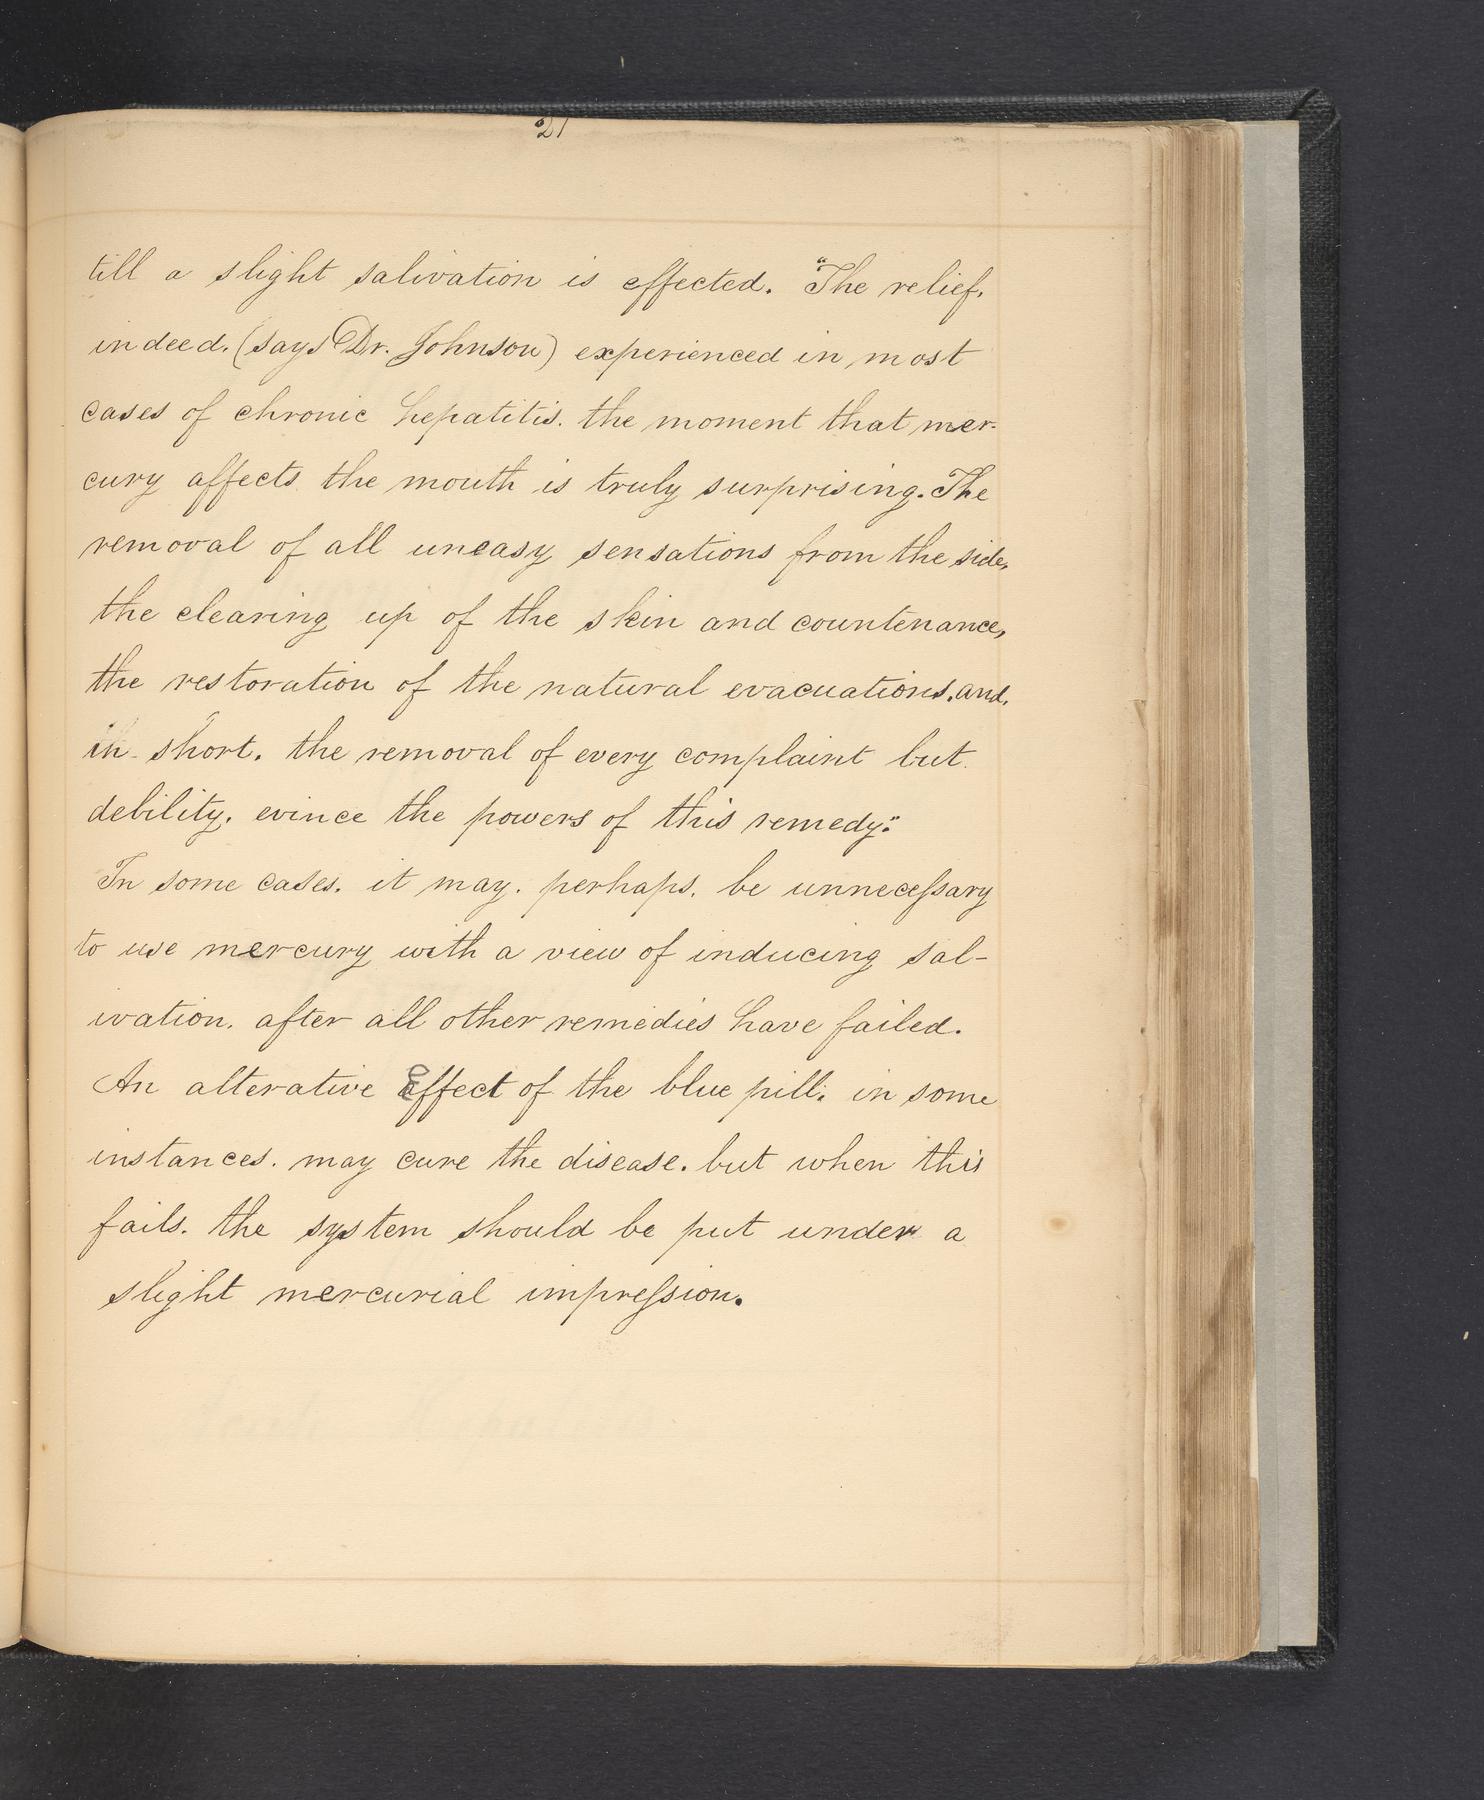 21
till a slight salivation is effected. "The relief,
indeed. (says Dr. Johnson) experienced in most
cases of chronic hepatitis. the moment that mer-
cury affects the mouth is truly surprising. The
removal of all uneasy sensations from the side,
the clearing up of the skin and countenance,
the restoration of the natural evacuations. and,
in short. the removal of every complaint but
debility. evince the powers of this remedy."
In some cases. it may. perhaps. be unnecessary
to use mercury with a view of inducing sal-
ivation. after all other remedies have failed.
An alterative Effect of the blue pill. in some
instances. may cure the disease. but when this
fails. the system should be put under a
slight mercurial impression.